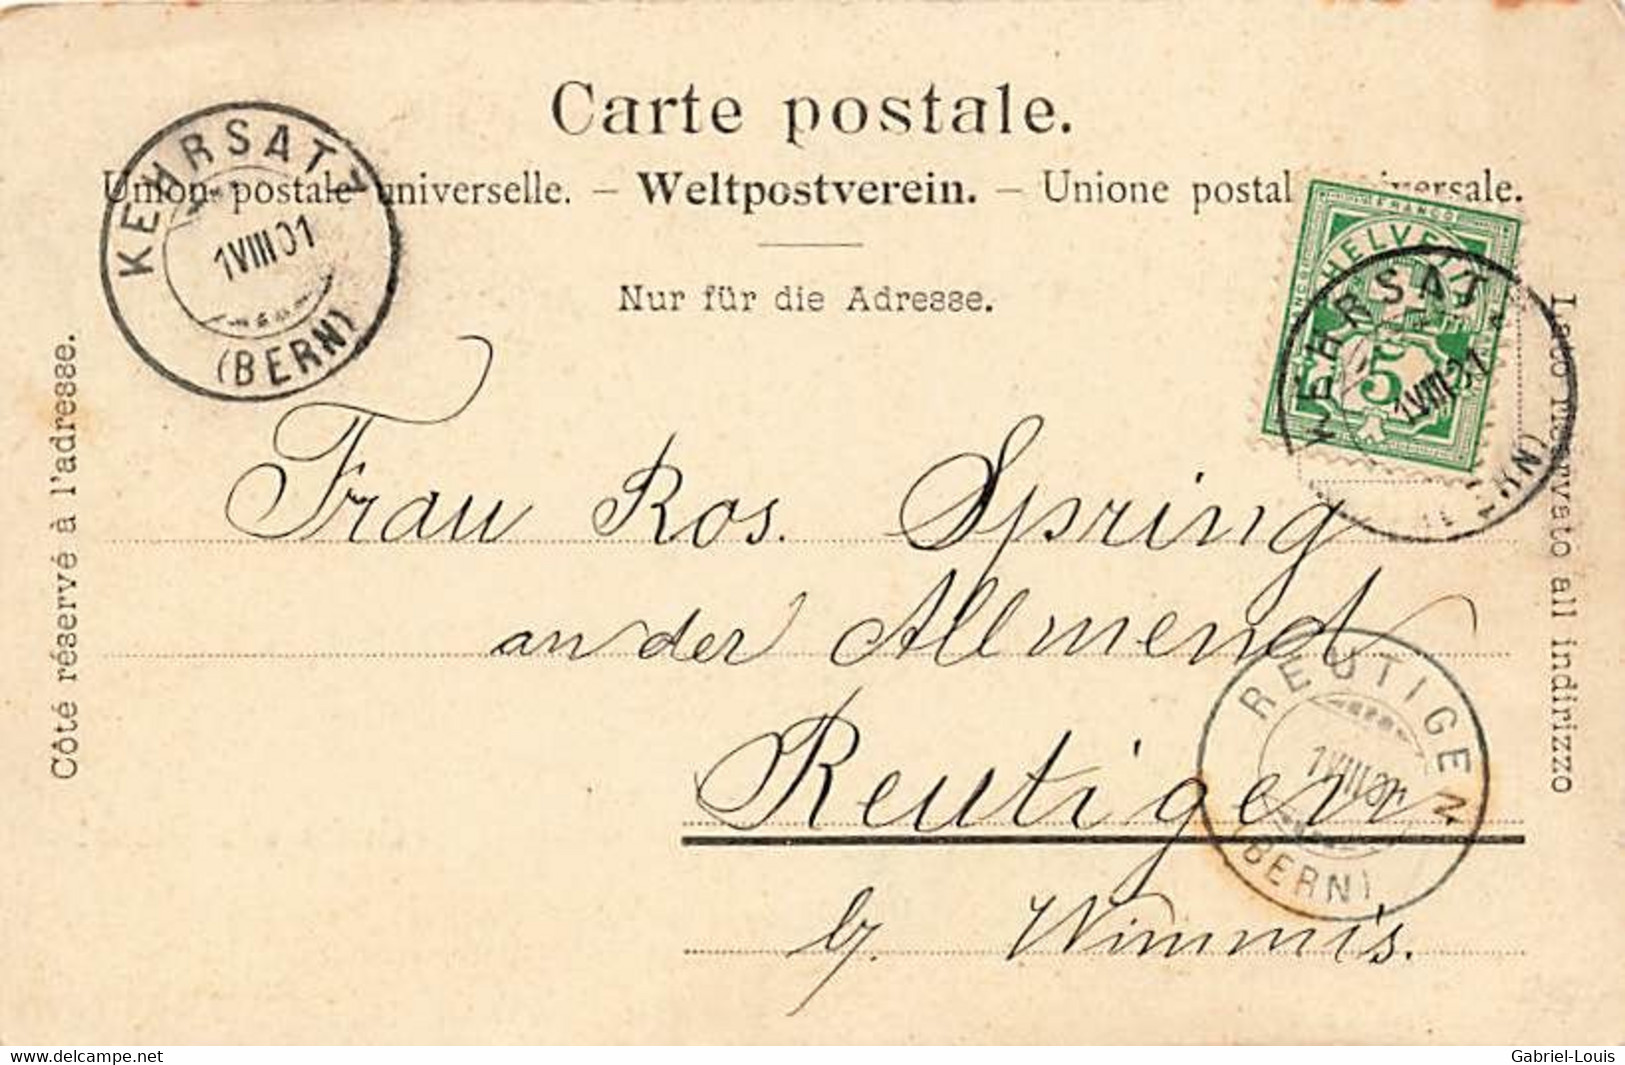 Carte postale.
Union postale universelle. – Weltpostverein. – Unione postal
Nur für die Adresse.
KEHRSATZ
1 VIII 01
(BERN)
FRANCO
HELVETIA
5
KEHRSATZ
1 VIII 01
Côté réservé à l'adresse.
Lato riservato all indirizzo
Frau Ros. Spring
an der Allmend
Reutigen
by. Wimmis.
REUTIGEN
1 VIII 01
(BERN)
www.delcampe.net
Gabriel-Louis